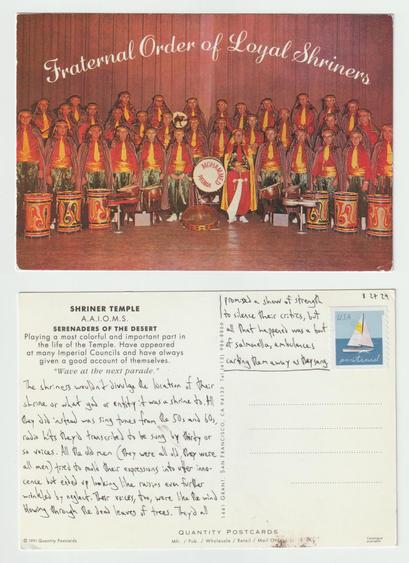 Fraternal Order of Loyal Shriners
MOHAMMED
SHRINER TEMPLE
A.A.I.O.M.S.
SERENADERS OF THE DESERT
Playing a most colorful and important part in
the life of the Temple. Have appeared
at many Imperial Councils and have always
given a good account of themselves.
"Wave at the next parade."
The shriners wouldn't divulge the location of their
shrine or what god or entity it was a shrine to. All
they did instead was sing tunes from the 50s and 60s,
radio hits they'd transcribed to be sung by thirty or
so voices. All the old men (they were all old, they were
all men) tried to mold their expressions into utter inno-
cence but ended up looking like raisins even further
wrinkled by neglect. Their voices, too, were like the wind
blowing through the dead leaves of trees. They'd all
© 1991 Quantity Postcards
QUANTITY POSTCARDS
Mfr. / Pub. / Wholesale / Retail / Mail
1441 GRANT, SAN FRANCISCO, CA 94133
promised a show of strength
to silence their critics, but
all that happened was a bout
of salmonella, ambulances
carting them away as they sang.
USA
postcard